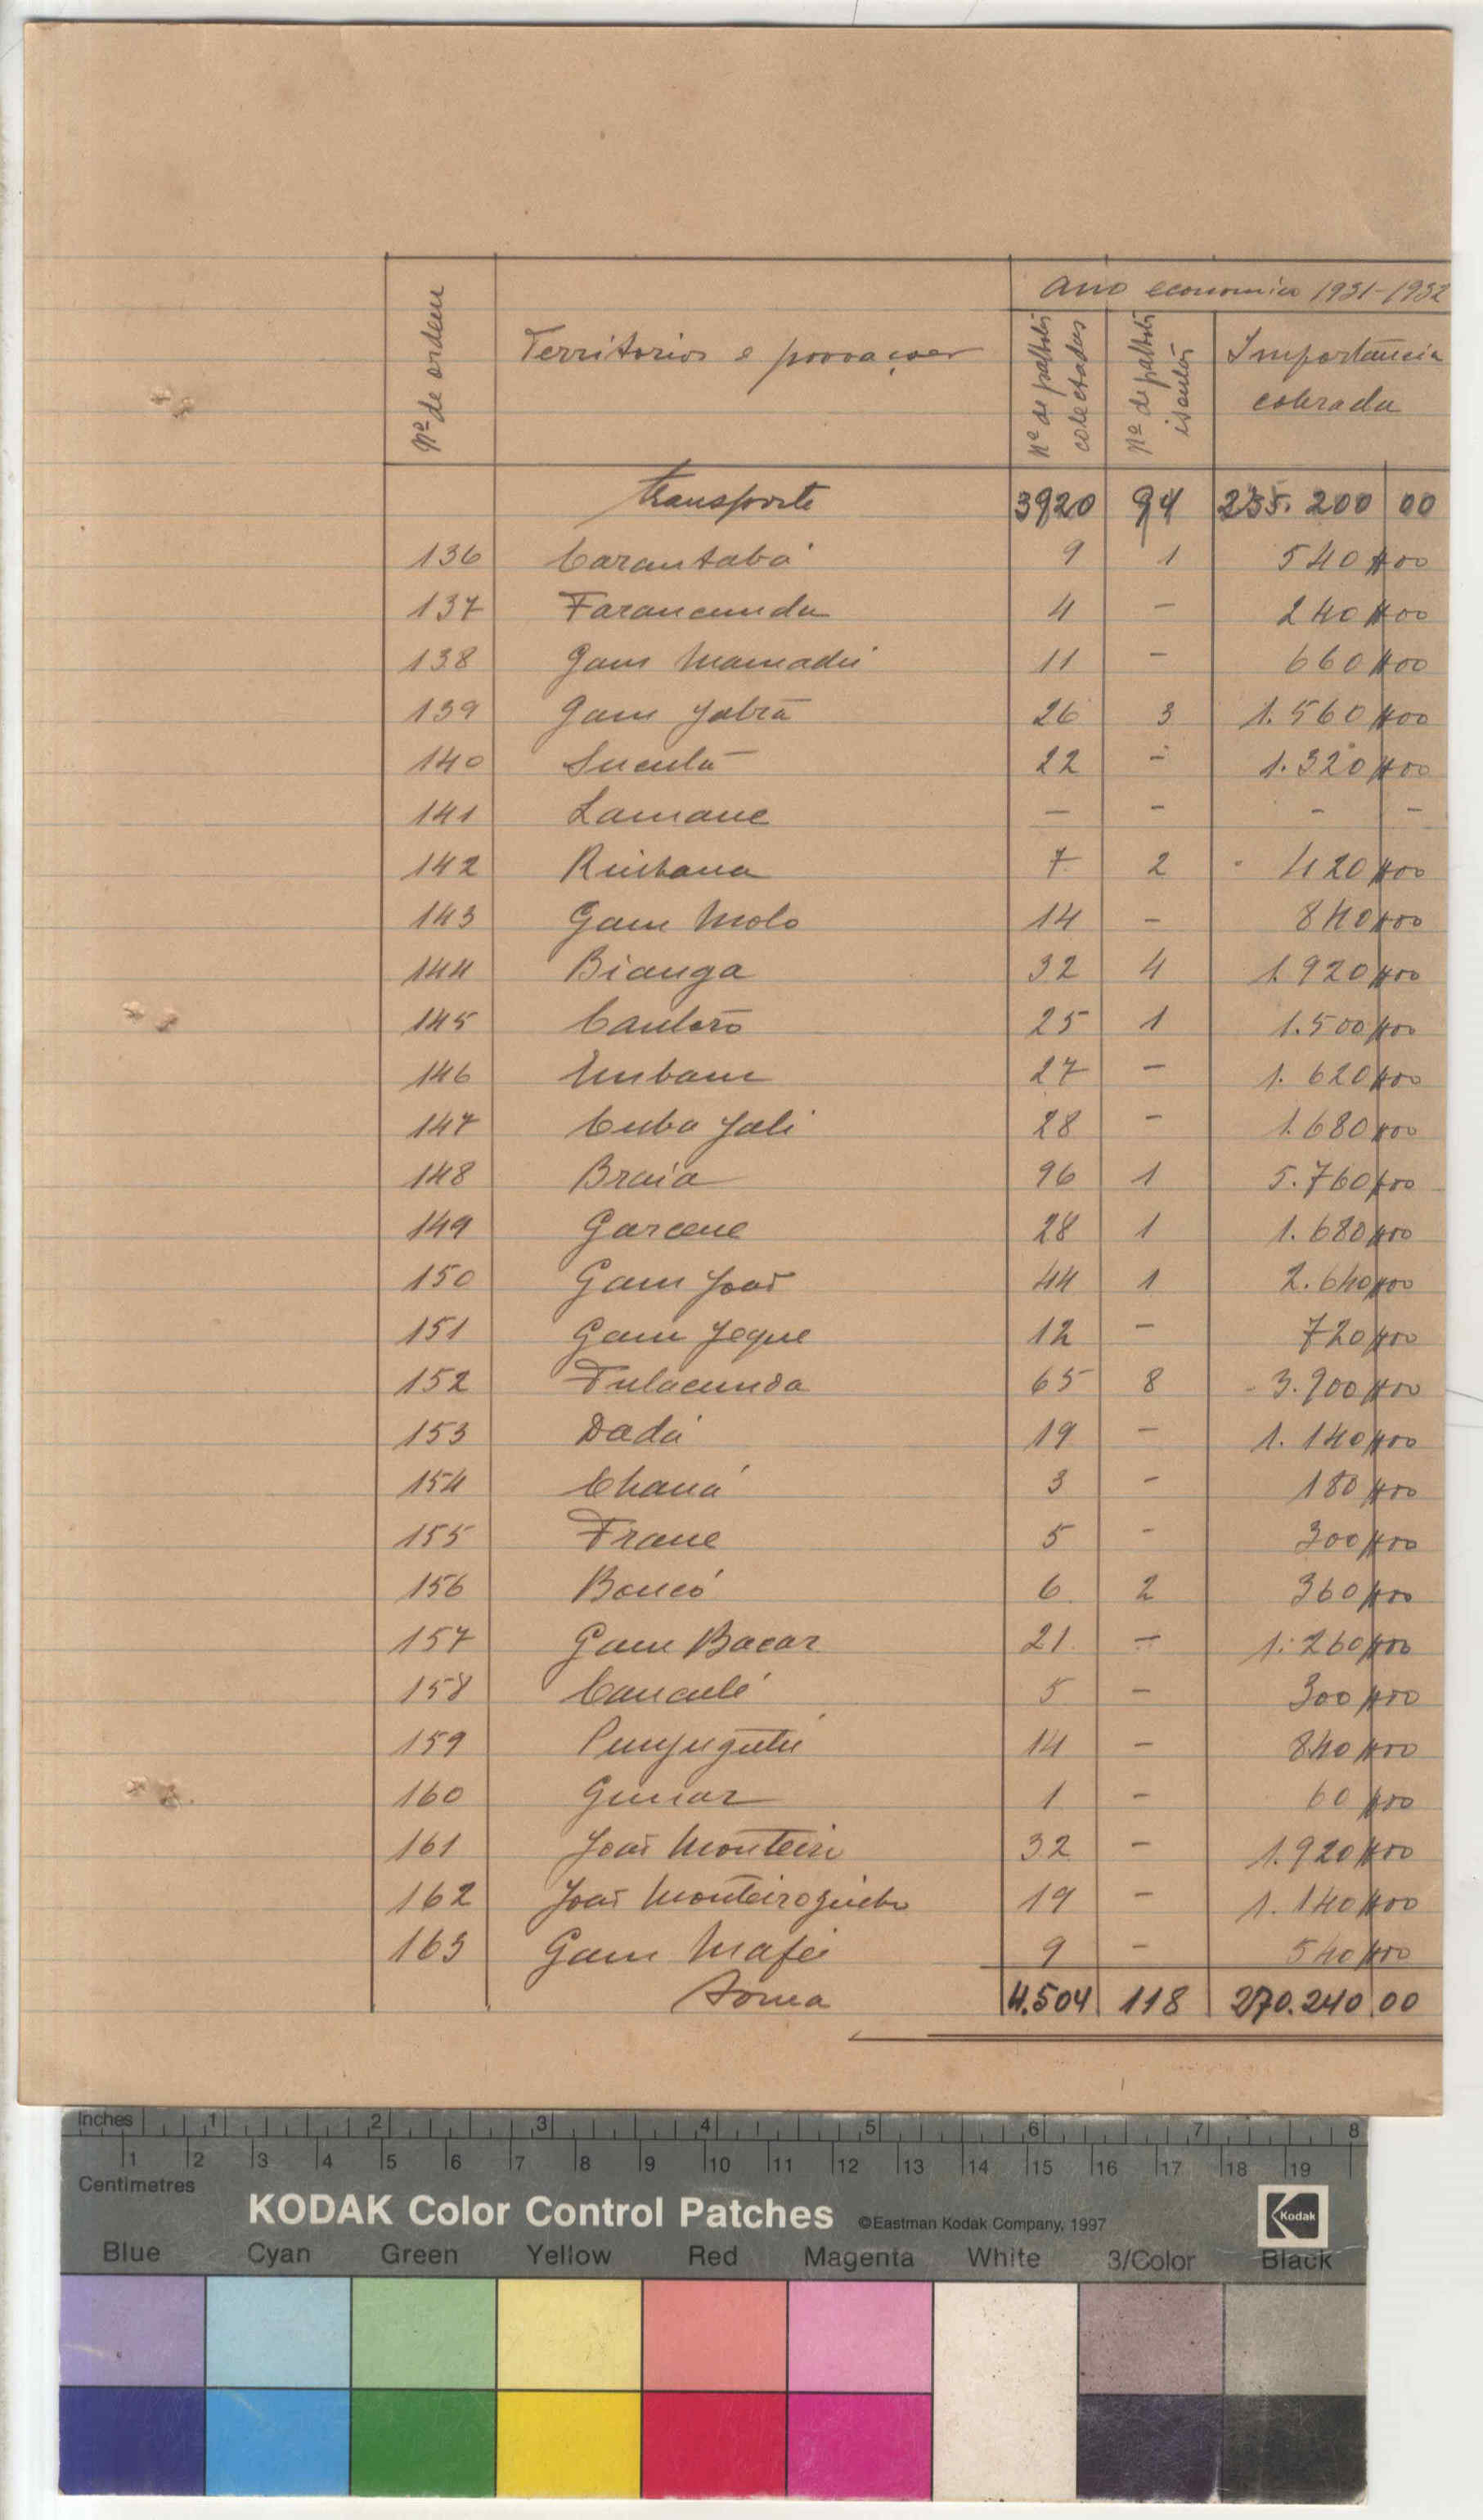 Ano economico 1931-1932
Nº de ordem
Territorios e povoações
Nº de palhotas colectadas
Nº de palhotas isentas
Importancia cobrada
Transporte 3920 94 235.200 00
136 Carantabá 9 1 540$00
137 Farancunda 4 - 240$00
138 Gam Mamadú 11 - 660$00
139 Gam Jabrá 26 3 1.560$00
140 Sucutá 22 - 1.320$00
141 Lamane - - - -
142 7 2 420$00
143 Gam Molo 14 - 840$00
144 Bianga 32 4 1.920$00
145 25 1 1.500$00
146 27 - 1.620$00
147 Cuba Jali 28 - 1.680$00
148 Braia 96 1 5.760$00
149 Garcene 28 1 1.680$00
150 Gam João 44 1 2.640$00
151 Gam Jeque 12 - 720$00
152 Fulacunda 65 8 3.900$00
153 Dadá 19 - 1.140$00
154 Chaná 3 - 180$00
155 Frane 5 - 300$00
156 Boncó 6 2 360$00
157 Gam Bacar 21 - 1.260$00
158 Canculé 5 - 300$00
159 14 - 840$00
160 1 - 60$00
161 João Monteiro 32 - 1.920$00
162 João Monteiro 19 - 1.140$00
163 Gam Mafei 9 - 540$00
Soma 4.504 118 270.240 00
Inches 1 2 3 4 5 6 7 8
1 2 3 4 5 6 7 8 9 10 11 12 13 14 15 16 17 18 19
Centimetres
KODAK Color Control Patches ©Eastman Kodak Company, 1997 Kodak
Blue Cyan Green Yellow Red Magenta White 3/Color Black